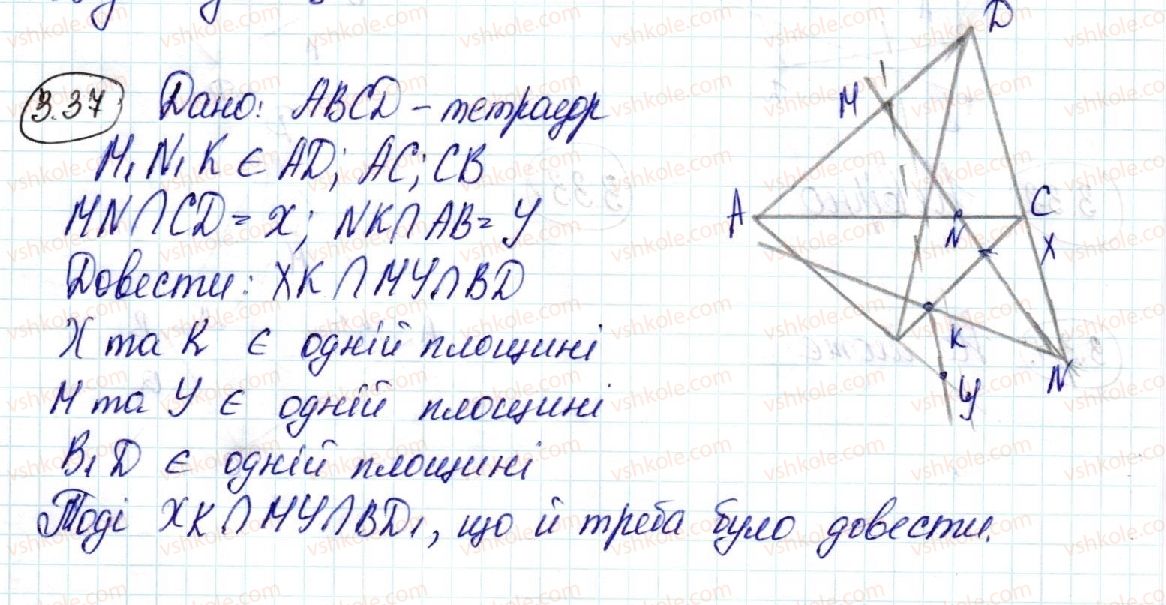 3.37 Дано: ABCD – тетраедр
M, N, K ∈ AD; AC; CB
MN∩CD = X; NK∩AB = Y
Довести: XK∩MY∩BD
X та K є одній площині
M та Y є одній площині
B, D є одній площині
Тоді XK∩MY∩BD, що й треба було довести.
D
M
A
C
N
X
K
N
Y
vshkole.com